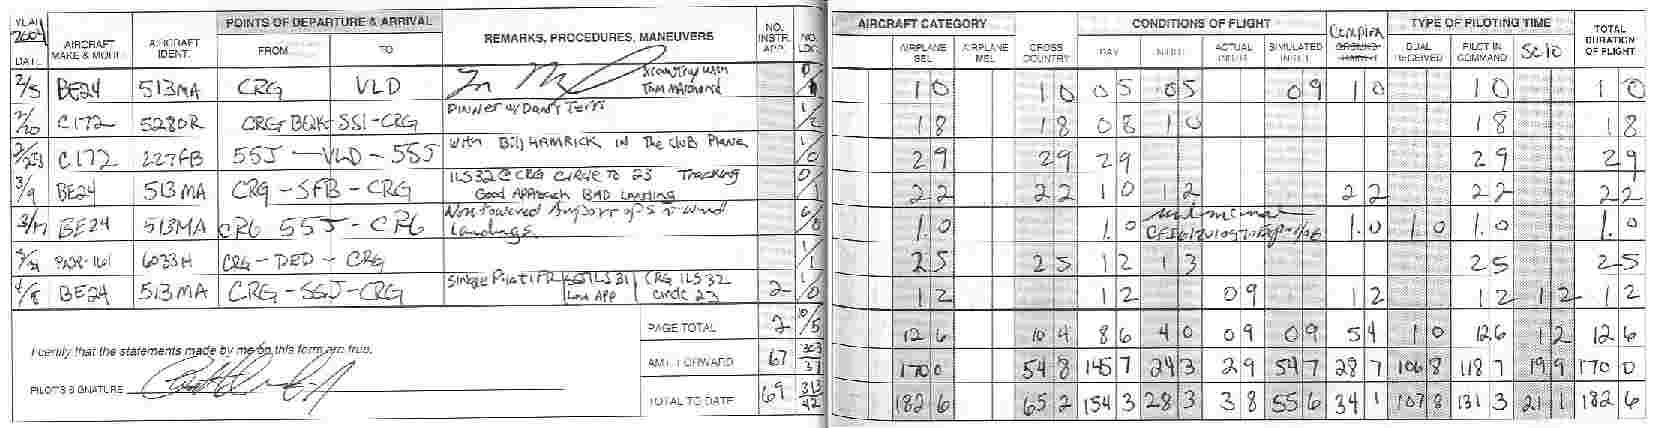 YEAR 2004 POINTS OF DEPARTURE & ARRIVAL AIRCRAFT CATEGORY CONDITIONS OF FLIGHT TYPE OF PILOTING TIME
DATE AIRCRAFT MAKE & MODEL AIRCRAFT IDENT. FROM TO REMARKS, PROCEDURES, MANEUVERS NO. INSTR. APP. NO. AIRPLANE SEL AIRPLANE MEL CROSS COUNTRY DAY NIGHT ACTUAL SIMULATED DUAL RECEIVED PILOT IN COMMAND Solo TOTAL DURATION OF FLIGHT
2/5 BE24 513MA CRG VLD with Tom 0/1 1 0 1 0 0 5 0 5 0 9 1 0 1 0 1 0
2/20 C172 5280R CRG-BQK-SSI-CRG Dinner w/ Dan & Terri 1/2 1 8 1 8 0 8 1 0 1 8 1 8
C172 227FB 55J-VLD-55J With Bill HAMRICK IN The club Plane 1/0 2 9 2 9 2 9 2 9 2 9
3/9 BE24 513MA CRG-SFB-CRG ILS 32 @ CRG Circle to 23 Tracking 0/1 2 2 2 2 1 0 1 2 2 2 2 2 2 2
Good Approach BAD Landing
BE24 513MA CRG 55J-CRG Non Towered Airport ops x-wind Landings 6/8 1.0 1.0 1.0 1 0 1.0 1.0
6033H CRG-DED-CRG 1/1 2 5 2 5 1 2 1 3 2 5 2 5
4/8 BE24 513MA CRG-SGJ-CRG Single Pilot IFR SGJ ILS 31 Low App CRG ILS 32 Circle 23 2 1/0 1 2 1 2 0 9 1 2 1 2 1 2 1 2
PAGE TOTAL 2 10/5 12 6 10 4 8 6 4 0 0 9 0 9 5 4 1 0 12 6 1 2 12 6
I certify that the statements made by me on this form are true.
AMT. FORWARD 67 303/37 170 0 54 8 145 7 24 3 2 9 54 7 28 7 106 8 118 7 19 9 170 0
PILOT'S SIGNATURE
TOTAL TO DATE 69 313/42 182 6 65 2 154 3 28 3 3 8 55 6 34 1 107 8 131 3 21 1 182 6